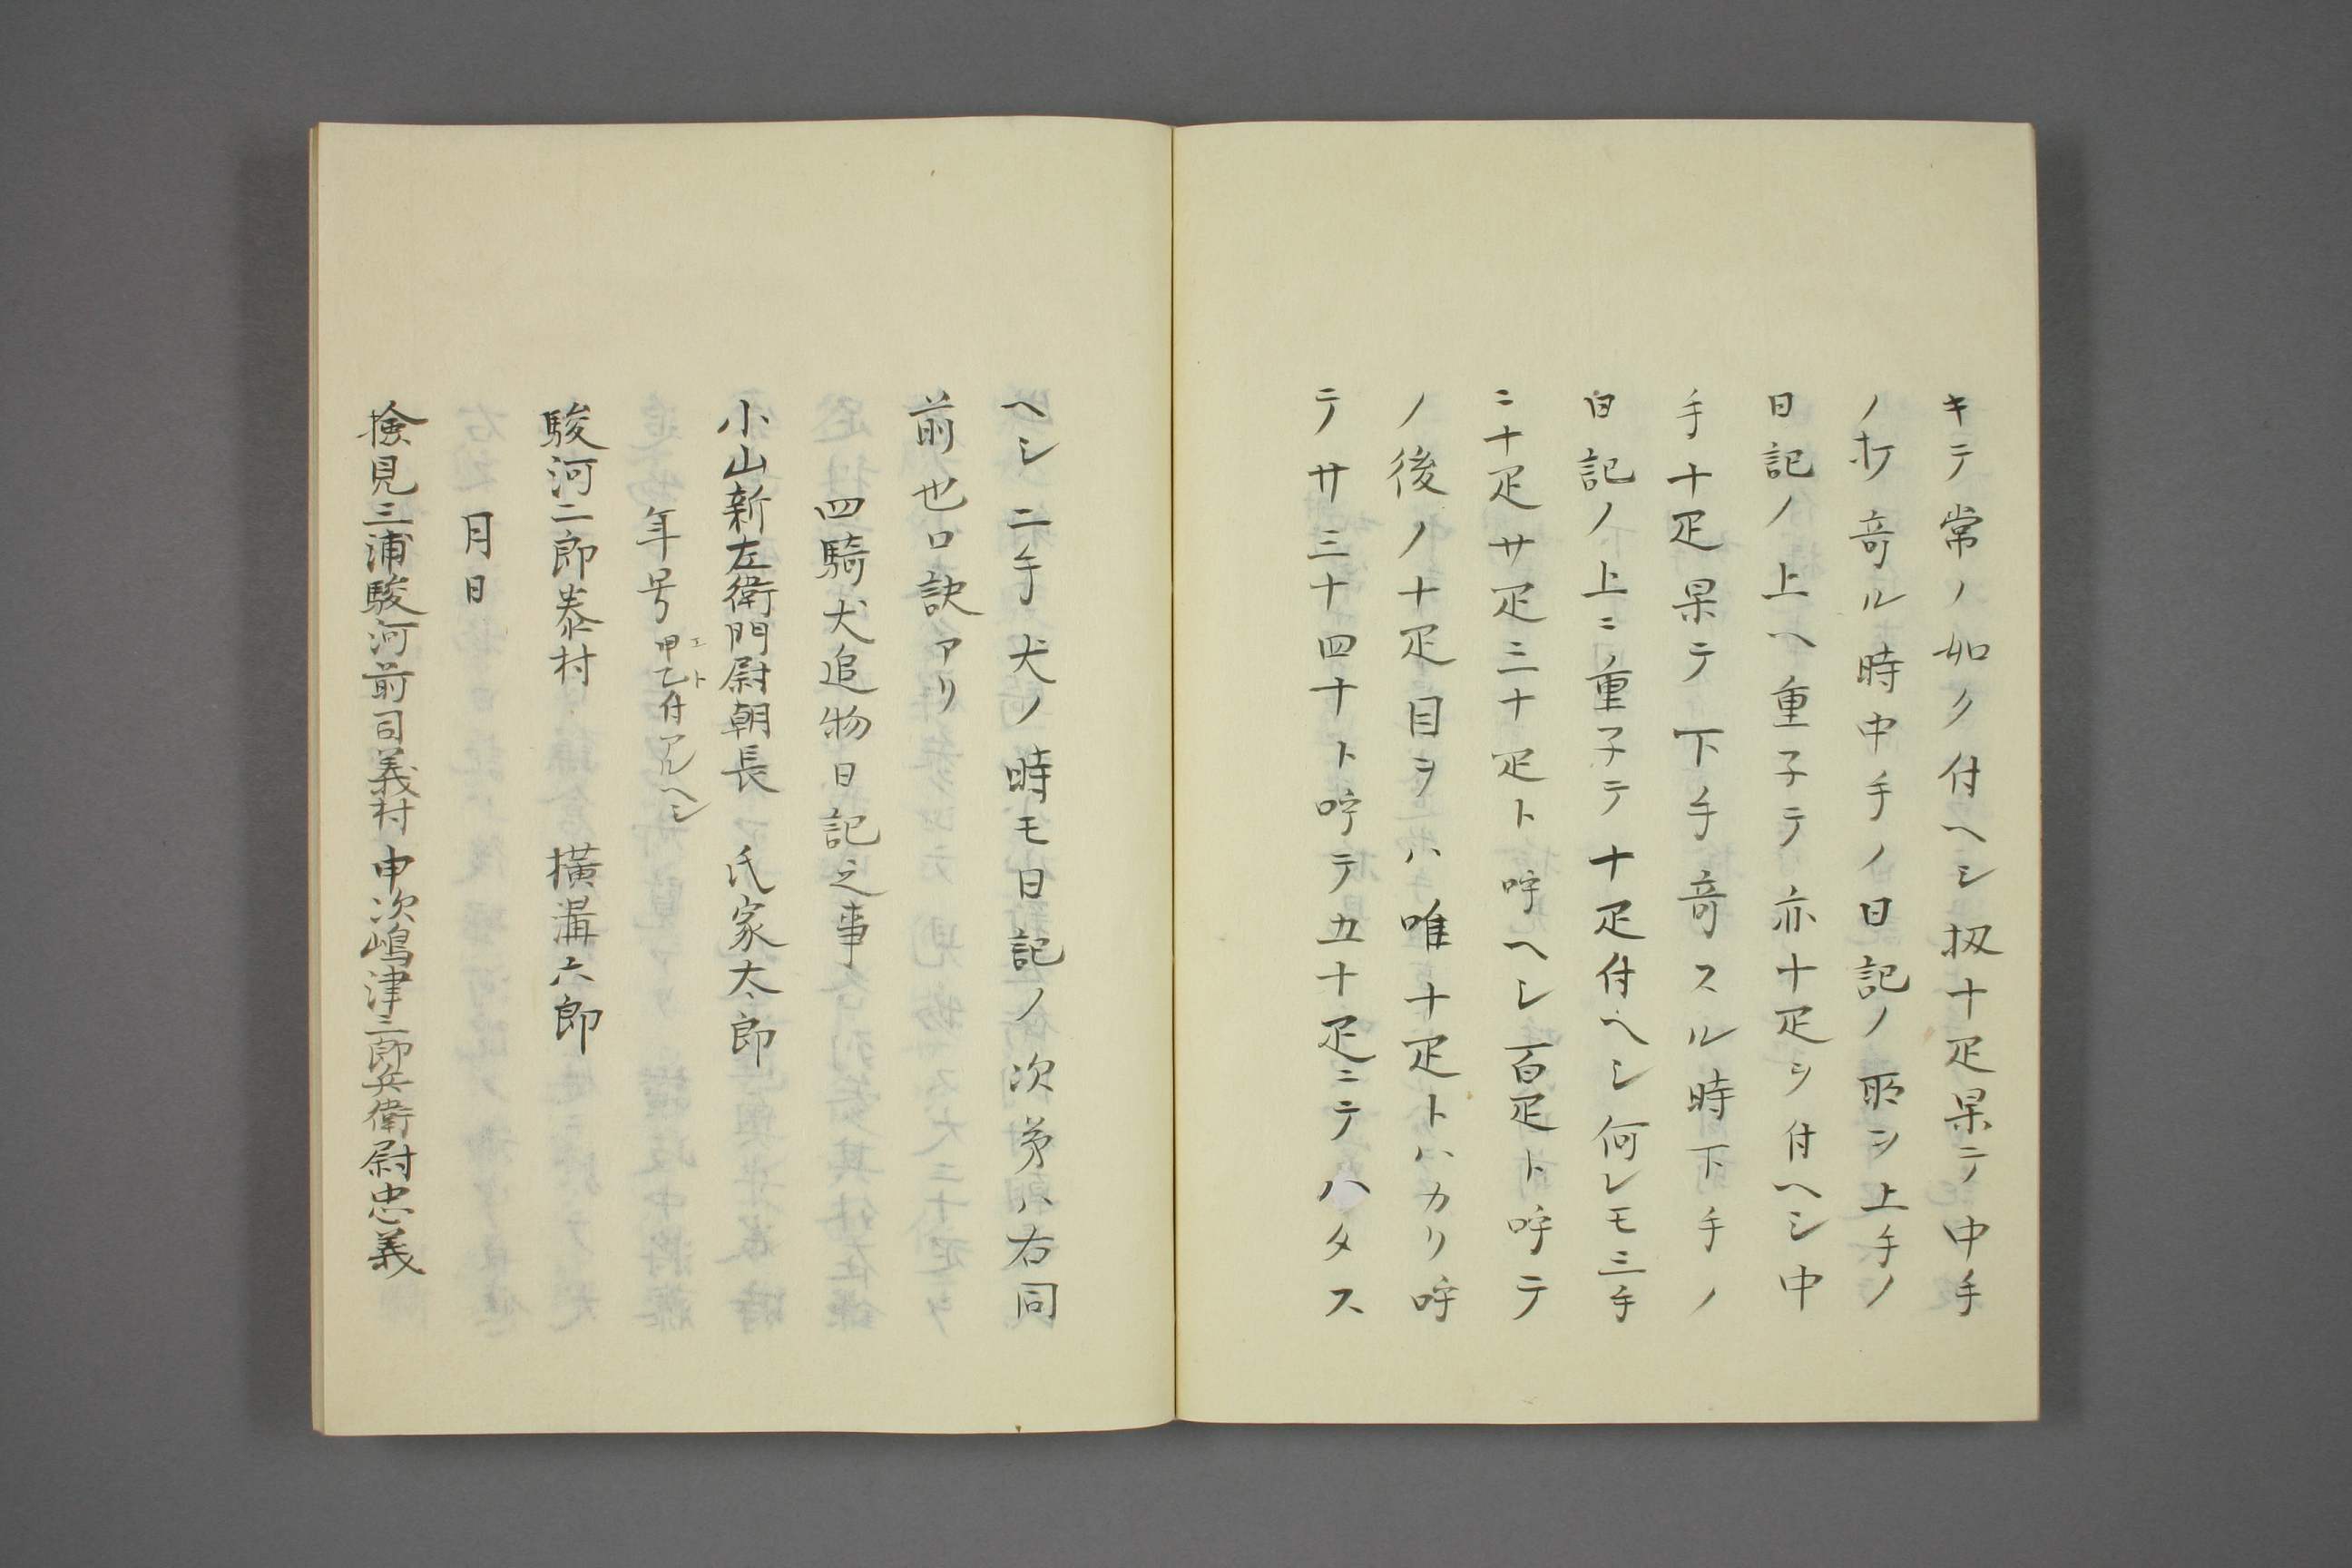 キテ常ノ如ク付ヘシ扨十疋果テ中手
ノ打竒ル時中手ノ日記ノ取シ上手ノ
日記ノ上ヘ重子テ亦十疋ヲ付ヘシ中
手十疋果テ下手竒スル時下手ノ
日記ノ上ニ重子テ十疋付ヘシ何レモ三手
ニ十疋サ疋三十疋ト呼ヘシ百疋ト呼テ
ノ後ノ十疋目ヲハ唯十疋トハカリ呼
テサ三十四十ト呼テ五十疋ニテハタス
ヘシ二手犬ノ時モ日記ノ次第ハ右同
前也口訣アリ
四騎犬追物日記之事
小山新左衛門尉朝長 氏家太郎
年号甲乙付アルヘシ
エト
駿河二郎泰村 横溝六郎
月日
検見三浦駿河前司義村 申次嶋津三郎兵衛尉忠義